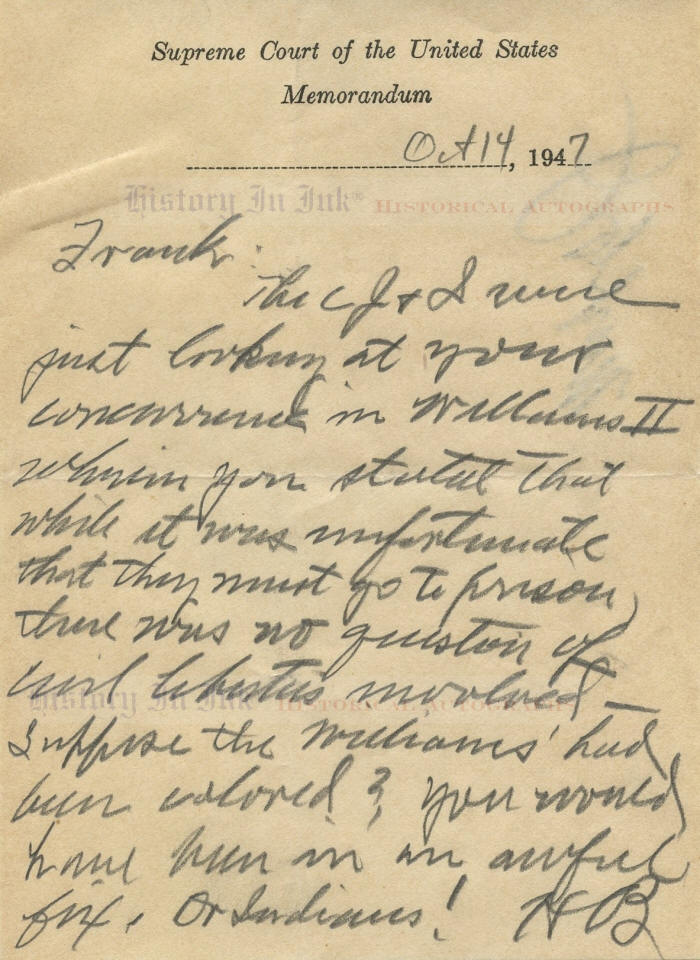 Supreme Court of the United States
Memorandum
Oct 14, 1947
History In Ink® Historical Autographs
Frank:
The CJ & I were
just looking at your
concurrence in Williams II
wherein you stated that
while it was unfortunate
that they must go to prison,
there was no question of
civil liberties involved –
History In Ink® Historical Autographs
Suppose the Williams' had
been colored? You would
have been in an awful
fix. Or Indians! HB